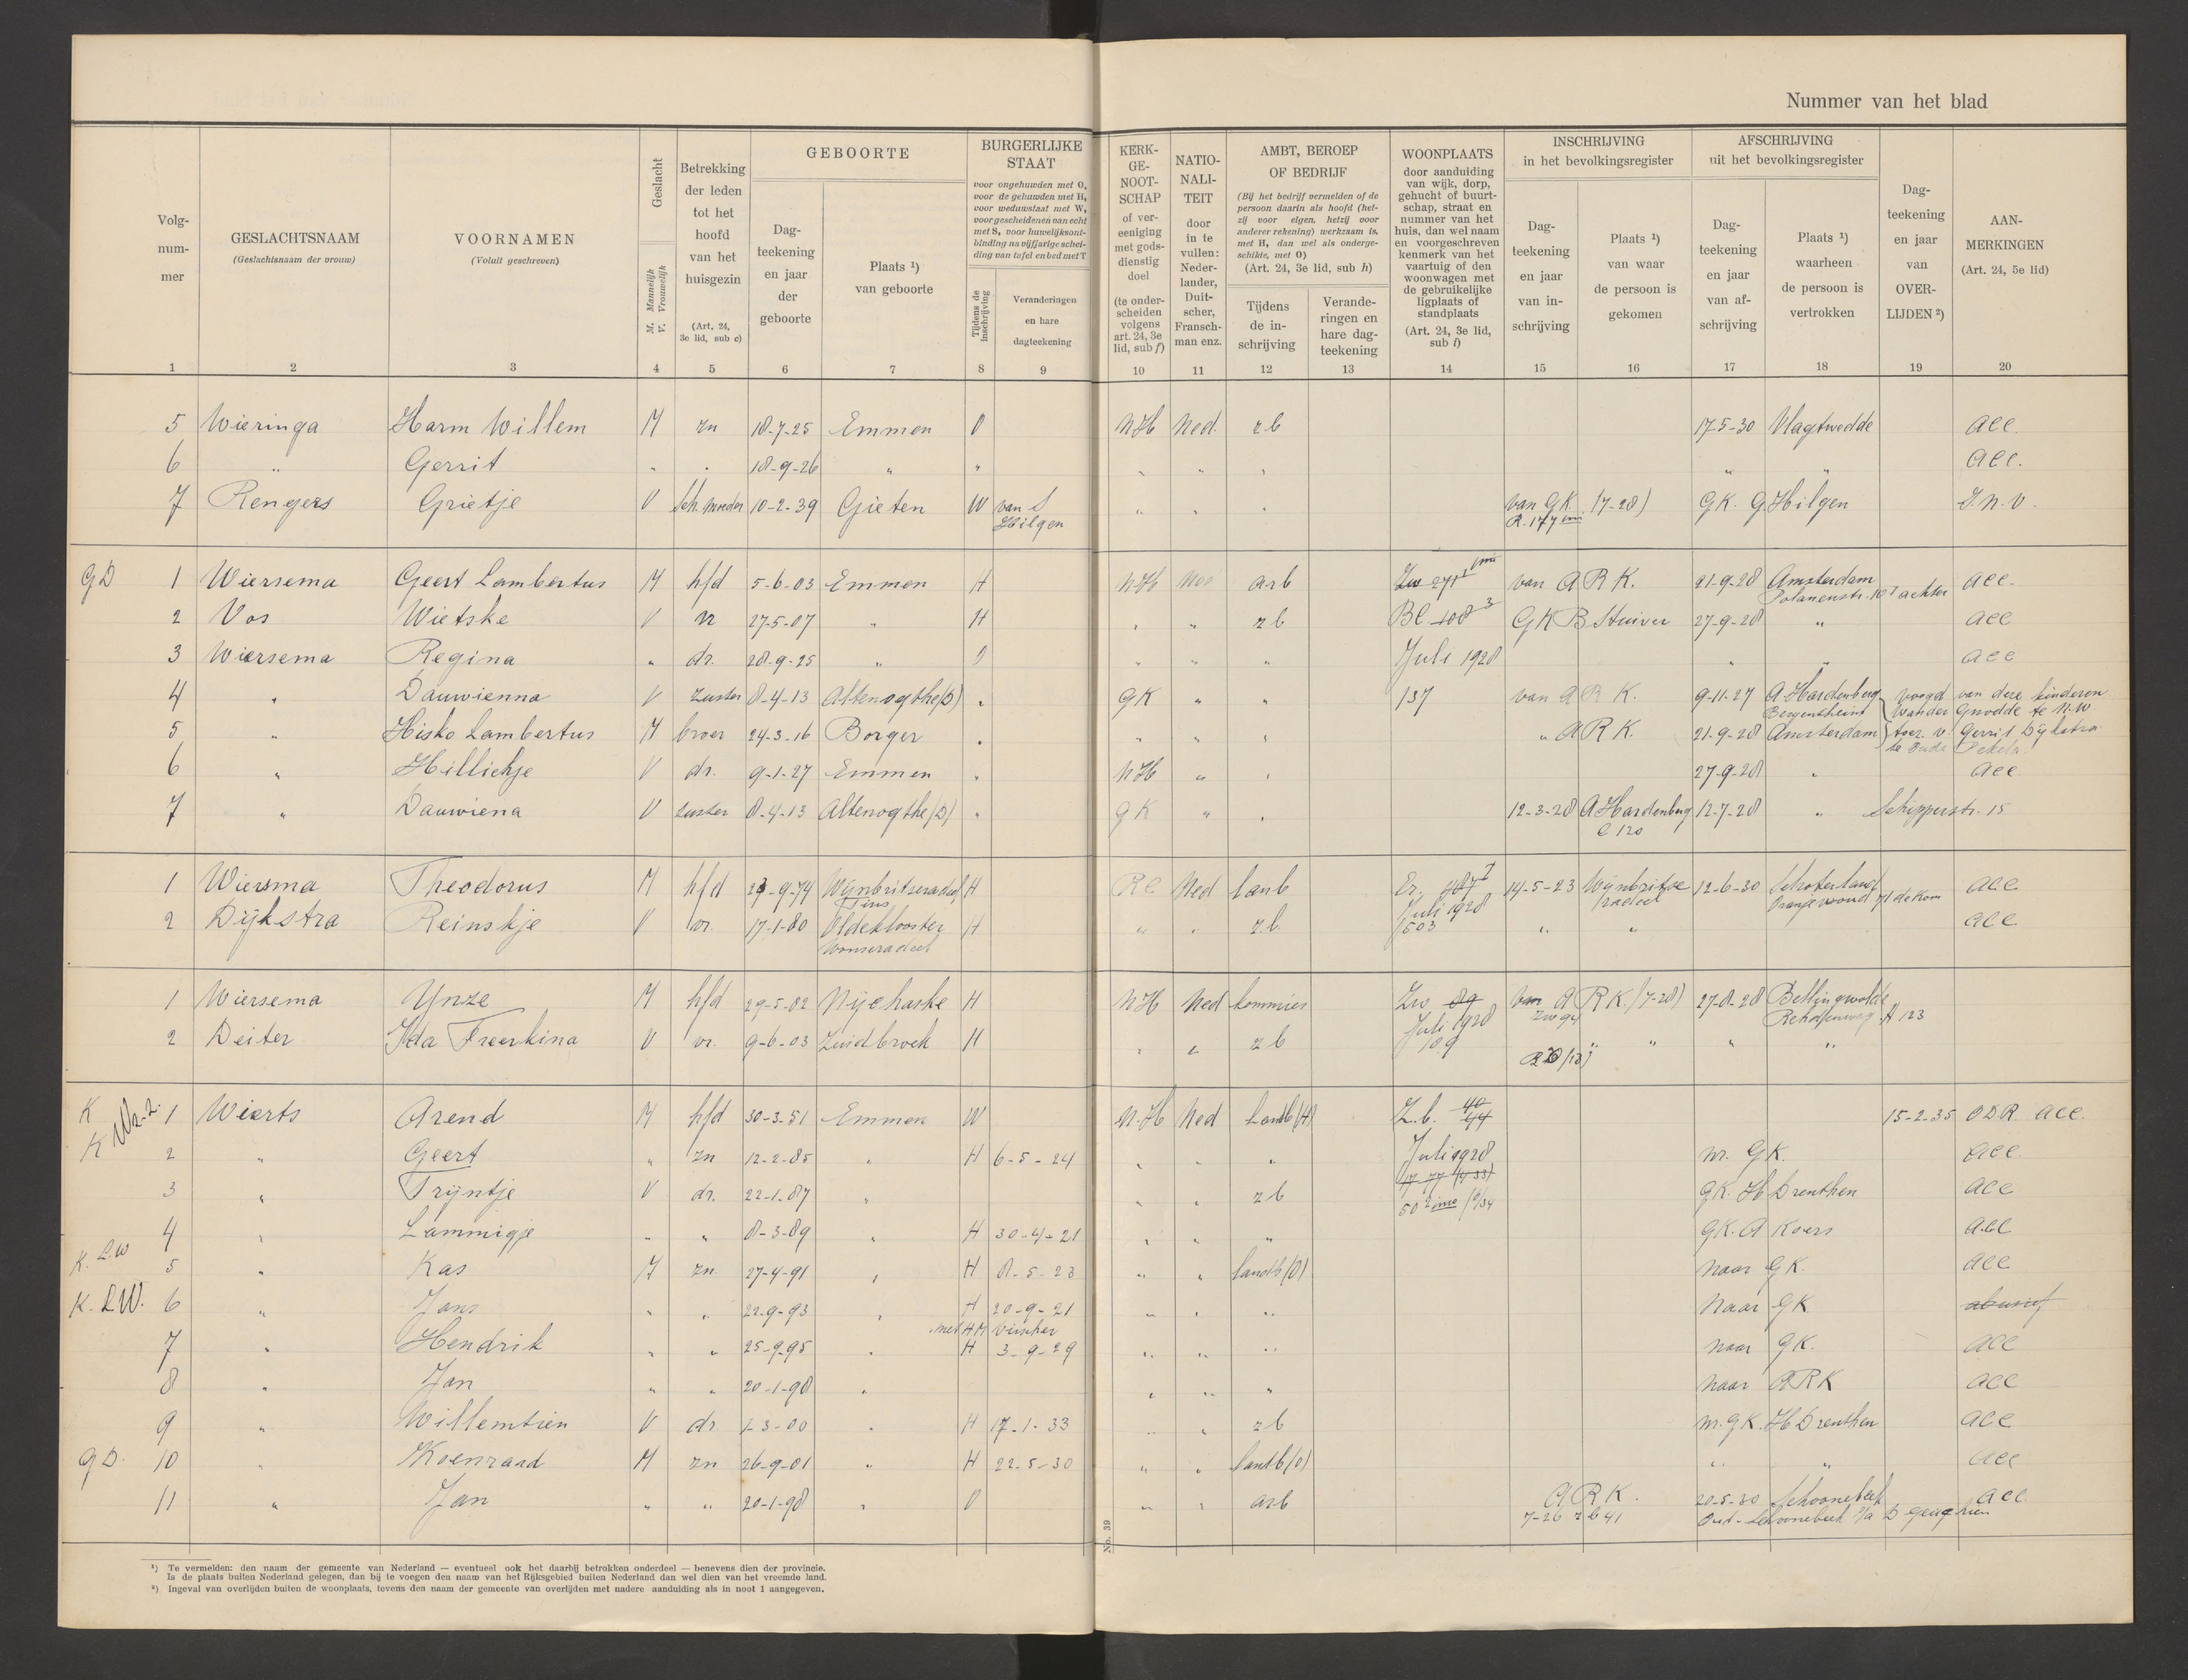 Nummer van het blad
Volg-nummer
GESLACHTSNAAM
(Geslachtsnaam der vrouw)
VOORNAMEN
(Voluit geschreven)
Geslacht
M. Mannelijk
V. Vrouwelijk
Betrekking der leden tot het hoofd van het huisgezin
(Art. 24, 3e lid, sub c)
GEBOORTE
Dagteekening en jaar der geboorte
Plaats ¹) van geboorte
BURGERLIJKE STAAT
voor ongehuwden met O, voor de gehuwden met H, voor weduwstaat met W, voor gescheidenen van echt met S, voor huwelijksontbinding na vijfjarige scheiding van tafel en bed met T
Tijdens de inschrijving
Veranderingen en hare dagteekening
KERK-GE-NOOT-SCHAP of vereeniging met godsdienstig doel
(te onderscheiden volgens art. 24, 3e lid, sub f)
NATIO-NALI-TEIT door in te vullen: Nederlander, Duitscher, Franschman enz.
AMBT, BEROEP OF BEDRIJF
(Bij het bedrijf vermelden of de persoon daarin als hoofd (hetzij voor eigen, hetzij voor anderer rekening) werkzaam is, met H, dan wel als ondergeschikte, met O)
(Art. 24, 3e lid, sub h)
Tijdens de inschrijving
Veranderingen en hare dagteekening
WOONPLAATS door aanduiding van wijk, dorp, gehucht of buurtschap, straat en nummer van het huis, dan wel naam en voorgeschreven kenmerk van het vaartuig of den woonwagen met de gebruikelijke ligplaats of standplaats
(Art. 24, 3e lid, sub i)
INSCHRIJVING in het bevolkingsregister
Dagteekening en jaar van inschrijving
Plaats ¹) van waar de persoon is gekomen
AFSCHRIJVING uit het bevolkingsregister
Dagteekening en jaar van afschrijving
Plaats ¹) waarheen de persoon is vertrokken
Dagteekening en jaar van OVERLIJDEN ²)
AANMERKINGEN
(Art. 24, 5e lid)
1 2 3 4 5 6 7 8 9 10 11 12 13 14 15 16 17 18 19 20
5 Wieringa Harm Willem M zn 18-7-25 Emmen O NH Ned. zb 17-5-30 Vlagtwedde acc.
6 " Gerrit " " 18-9-26 " " " " " " " acc.
7 Rengers Grietje V Sch. moeder 10-2-39 Gieten W van S Hilgen " " " van GK (7-28) GK. G. Hilgen
GD 1 Wiersema Geert Lambertus M hfd 5-6-03 Emmen H NH Ned arb van A R K. 21-9-28 Amsterdam acc.
Polanenstr. 10 I achter
2 Vos Wietske V 27-5-07 " H " " zb Bl 108 3 GK B Stuiver 27-9-28 " acc
3 Wiersema Regina " dr. 28-9-25 " O " " " Juli 1928 " " acc
4 " Dauwienna V zuster 8-4-13 Altenogthe (D) " GK " " 137 van A R K. 9-11-27 A Hardenberg voogd van deze kinderen
Bergentheim Wander Gnodde te N.W.
5 " Hisko Lambertus M broer 24-3-16 Borger " " " " " A R K. 21-9-28 Amsterdam toez. v. Gerrit Dijkstra
te Oude Pekela
6 " Hilliehje V dr. 9-1-27 Emmen " NH " " 27-9-28 " acc
7 " Dauwiena V zuster 8-4-13 Altenogthe (D) " GK " " 12-3-28 A Hardenberg 12-7-28 " Schipperstr. 15
1 Wiersma Theodorus M hfd 23-9-74 Wijnbritseradeel H RC Ned lanb Er. 487 I 14-5-23 Wijnbritseradeel 12-6-30 Schoterland acc
Oranjewoud 71 de Kom
2 Dijkstra Reinskje V vr. 17-1-80 Oldeklooster H " " zb Juli 1928 503 " " acc
Wonseradeel
1 Wiersema Ynze M hfd 29-5-02 Nijehaske H NH Ned kommies Zw 89 van A R K. (7-28) 27-8-28 Bellingwolde
Juli 1928 Zw 94 A 123
2 Deiter Ida Freerkina V vr. 9-6-03 Zuidbroek H " " zb 109 " " " "
K 1 Wierts Arend M hfd 30-3-51 Emmen W N.H Ned landb (H) Z.b. 40 44 15-2-35 ODR. acc.
K 2 " Geert " zn 12-2-85 " H 6-5-24 " " " Juli 1928 nr. GK. acc.
3 " Trijntje V dr. 22-1-87 " " " zb GK. H Drenthen acc
4 " Lammigje " " 8-3-89 " H 30-4-21 " " " GK. A Koers acc
K. LW 5 " Kas M zn 27-4-91 " H 8-5-23 " " landb (O) naar GK. acc
K. LW. 6 " Jans " " 22-9-93 " H 20-9-21 " " " Naar GK abusief
met HM Visscher
7 " Hendrik " " 25-9-95 " H 3-9-29 " " " naar GK. acc
8 " Jan " " 20-1-98 " " " " naar ARK acc
9 " Willemtien V dr 1-3-00 " H 17-1-33 " " zb nr. GK. H Drenthen acc
GD. 10 " Koenraad M zn 26-9-01 " H 22-5-30 " " landb (O) " " acc
11 " Jan " " 20-1-98 " O " " arb A R K. 20-5-30 Schoonebeek acc
7-26 Zb 41 Oud-Schoonebeek
No. 39
¹) Te vermelden: den naam der gemeente van Nederland — eventueel ook het daarbij betrokken onderdeel — benevens dien der provincie.
Is de plaats buiten Nederland gelegen, dan bij te voegen den naam van het Rijksgebied buiten Nederland dan wel dien van het vreemde land.
²) Ingeval van overlijden buiten de woonplaats, tevens den naam der gemeente van overlijden met nadere aanduiding als in noot 1 aangegeven.